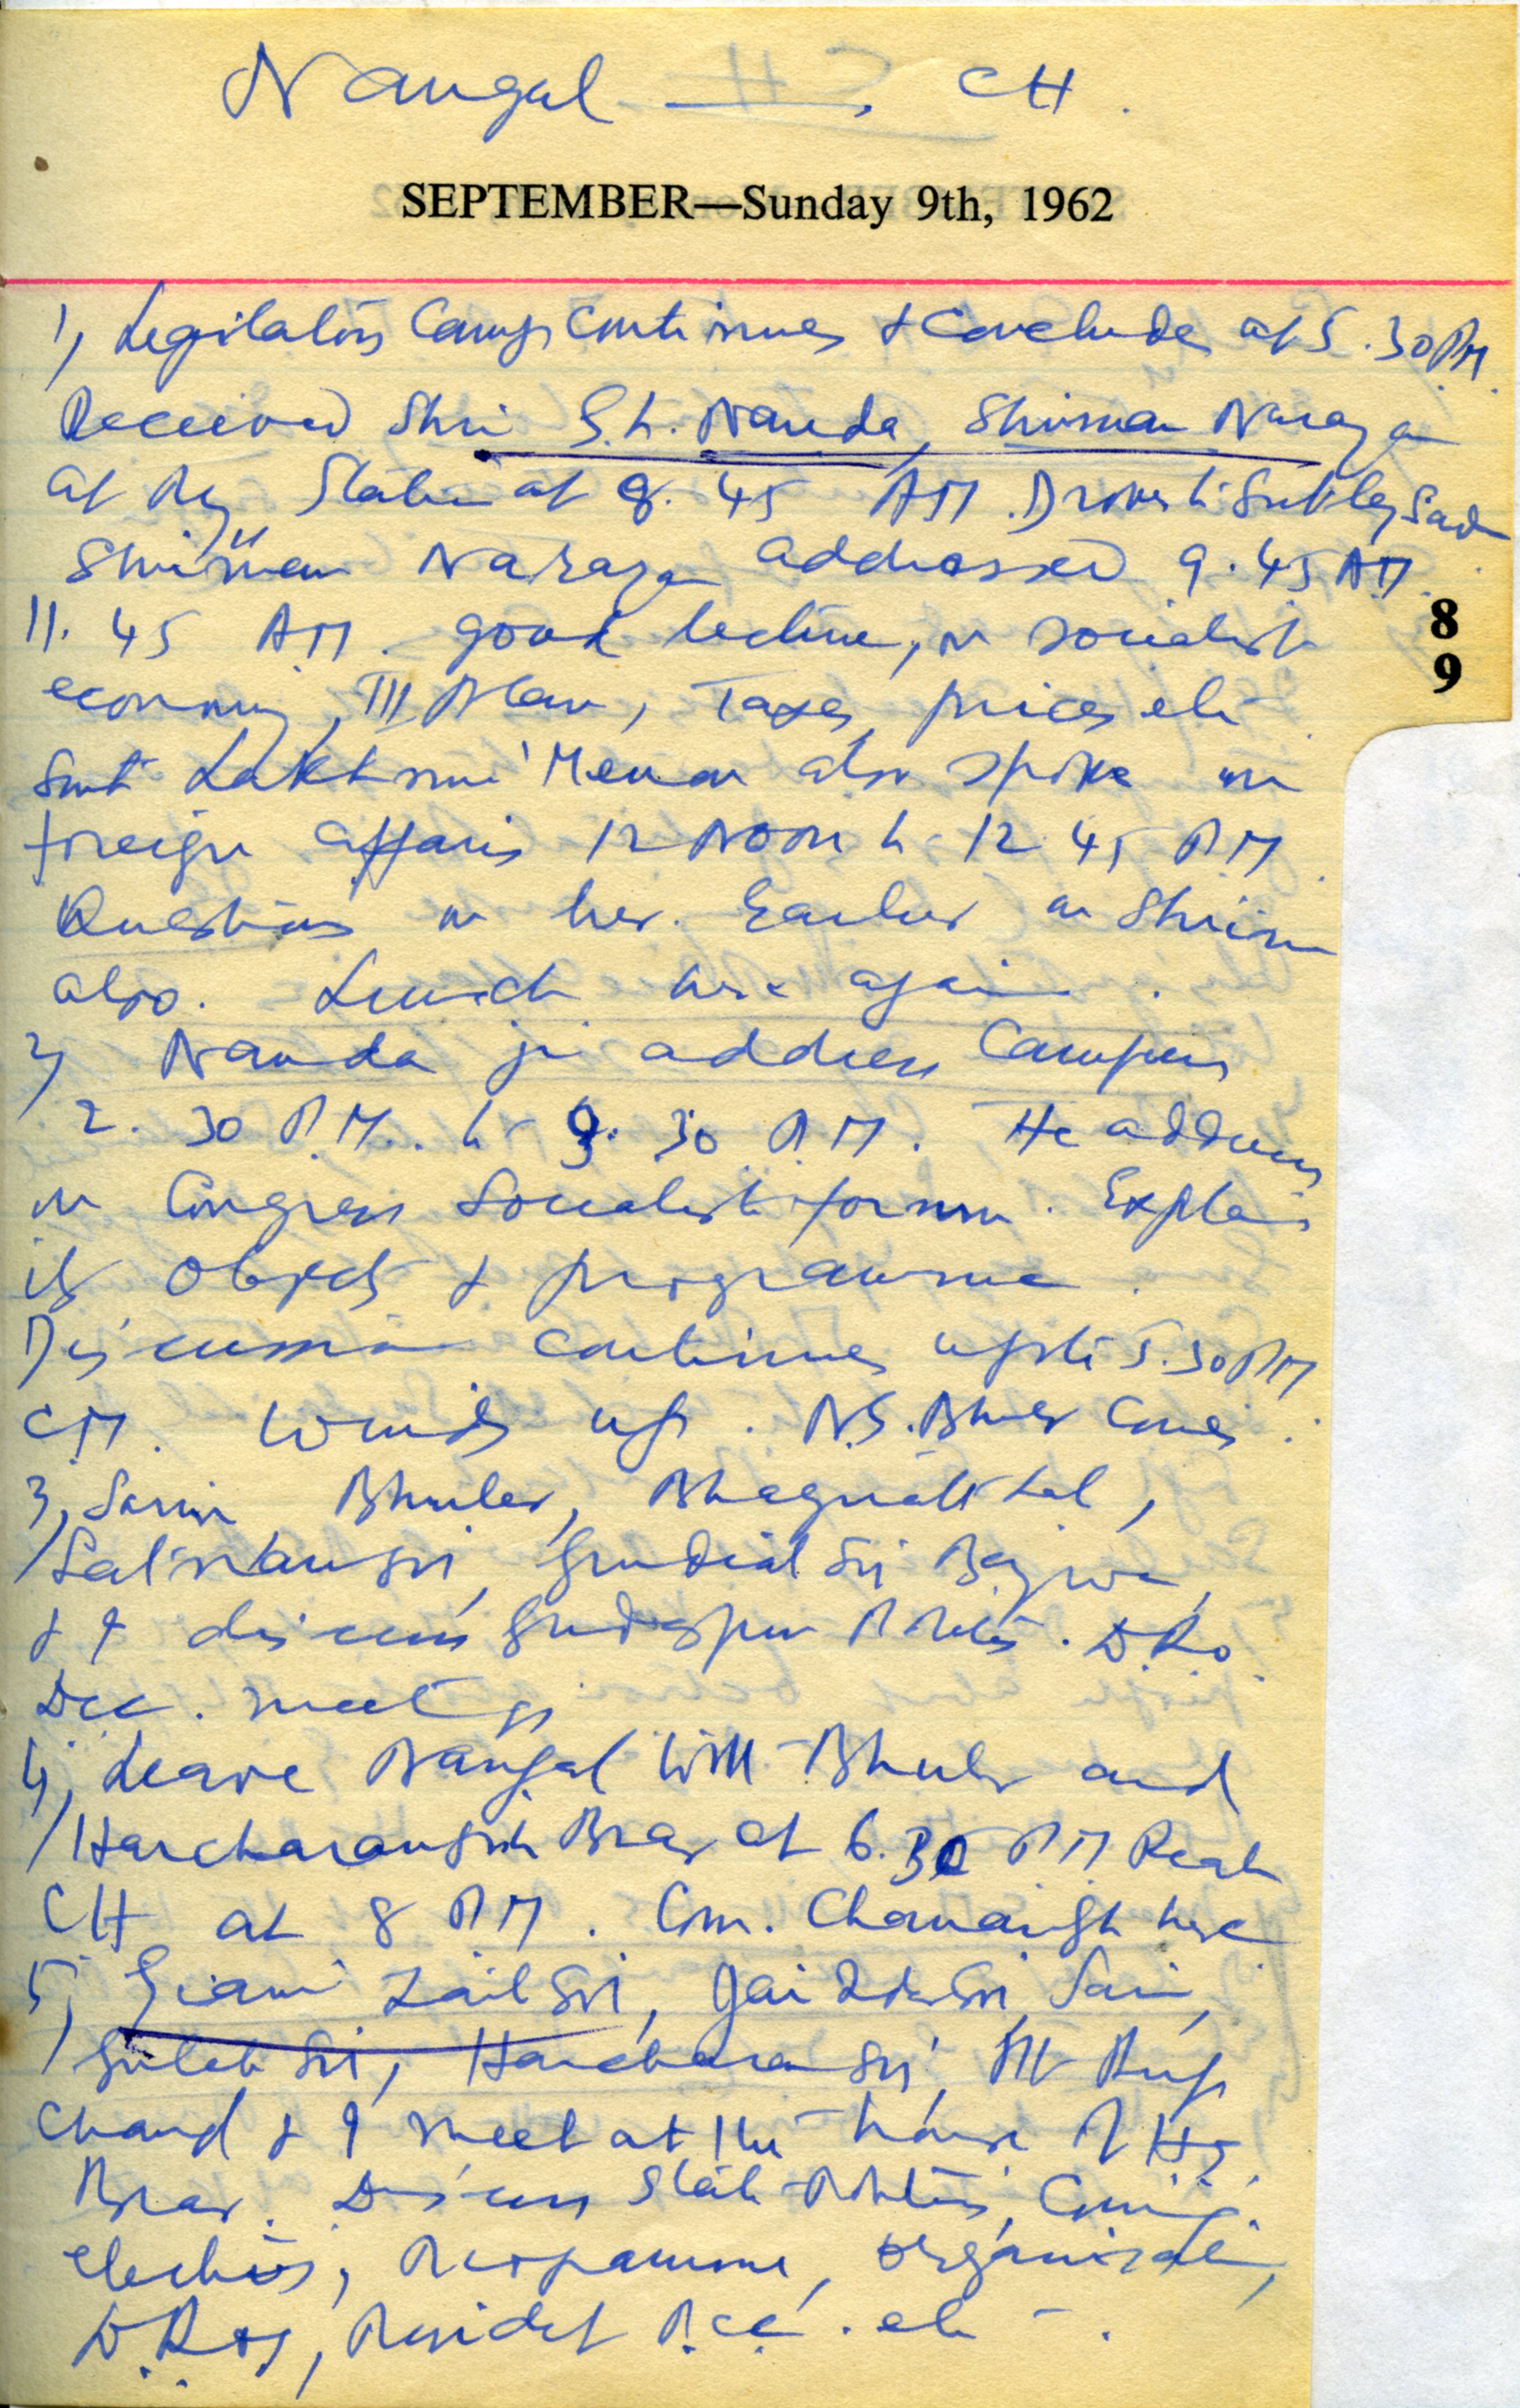 Nangal — , CH.
SEPTEMBER—Sunday 9th, 1962
1, Legilators Camp Continues & Conclude at 5.30 PM.
Received Shri G.L. Nanda, Shriman Narayan
at Rly Station at 8.45 AM. Drove to Sutlej Sadan
Shriman Narayan addressed 9.45 AM
11.45 AM. good lecture, on socialist
economy, III Plan, Taxes, prices etc
Smt Lakshmi Menon also spoke on
foreign affairs 12 Noon to 12.45 PM.
Questions on her. Earlier on Shriman
also. Lunch here again.
2, Nanda ji address Campers
2.30 P.M. to 3.30 P.M. He address
on Congress Socialist forum. Explain
its objects & programme.
Discussion continues upto 5.30 PM
CM. winds up. N.S. Bhuler Comes.
3, Sarin Bhuler, Bhagirath Lal,
Satnam Sri, Gurdial Sri Bajwa,
& I discuss Gurdaspur Politics. D.R.O.
Dcc. meetgs
4, Leave Nangal with Bhuler and
Harcharan Singh Brar at 6.30 PM Reach
CH at 8 PM. Com. Chanan Sgh here
5, Giani Zail Sri, Jai Inder Sri, Sarin,
Guleb Sri, Harcharan Sri, Pt Rup
Chand & I meet at the house of HS
Brar. Discuss State Politics, Coming
elections, Programme, organisation,
D.R.Os, President P.c.c. etc.
8
9